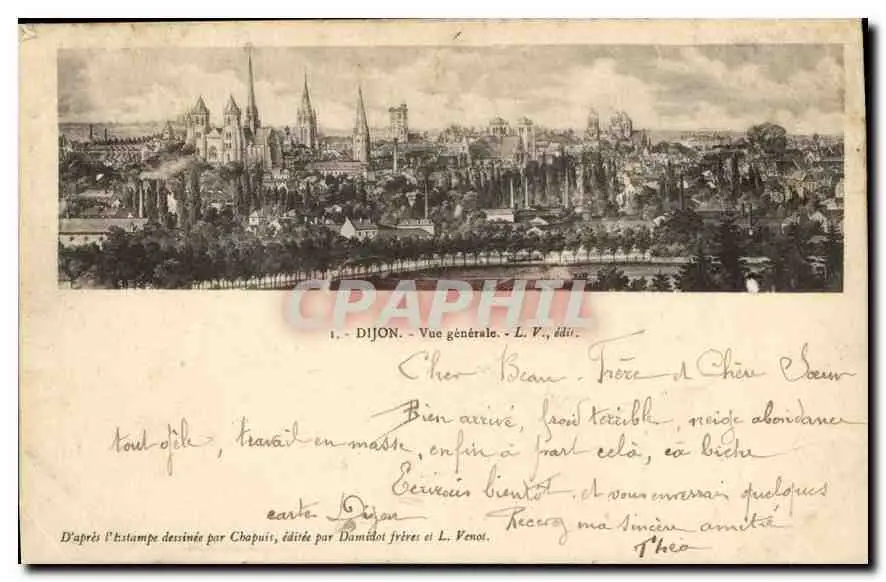 CPAPHIL
1. - DIJON. - Vue générale. - L. V., édit.
Cher Beau-Frère et Chère Sœur
Bien arrivé, froid terrible, neige abondance
tout gêle, travail en masse, enfin à part celà, ça biche
Ecrirais bientôt et vous enverrais quelques
cartes Dijon
Recevez ma sincère amitié
Théo
D'après l'Estampe dessinée par Chapuis, éditée par Damidot frères et L. Venot.